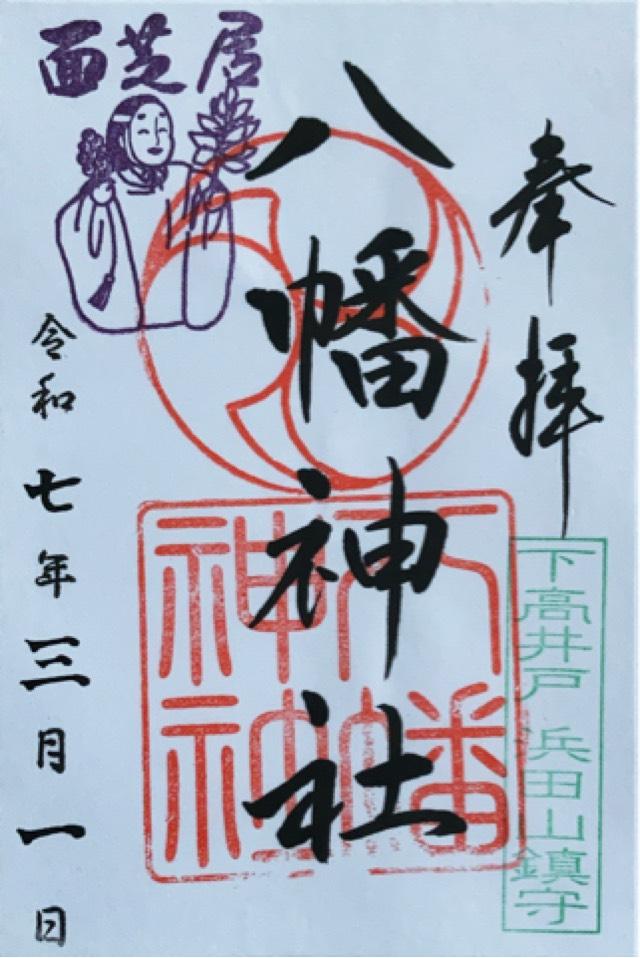 奉拝
下高井戸 浜田山鎮守
八幡神社
八幡
神社
面芝居
令和七年三月一日